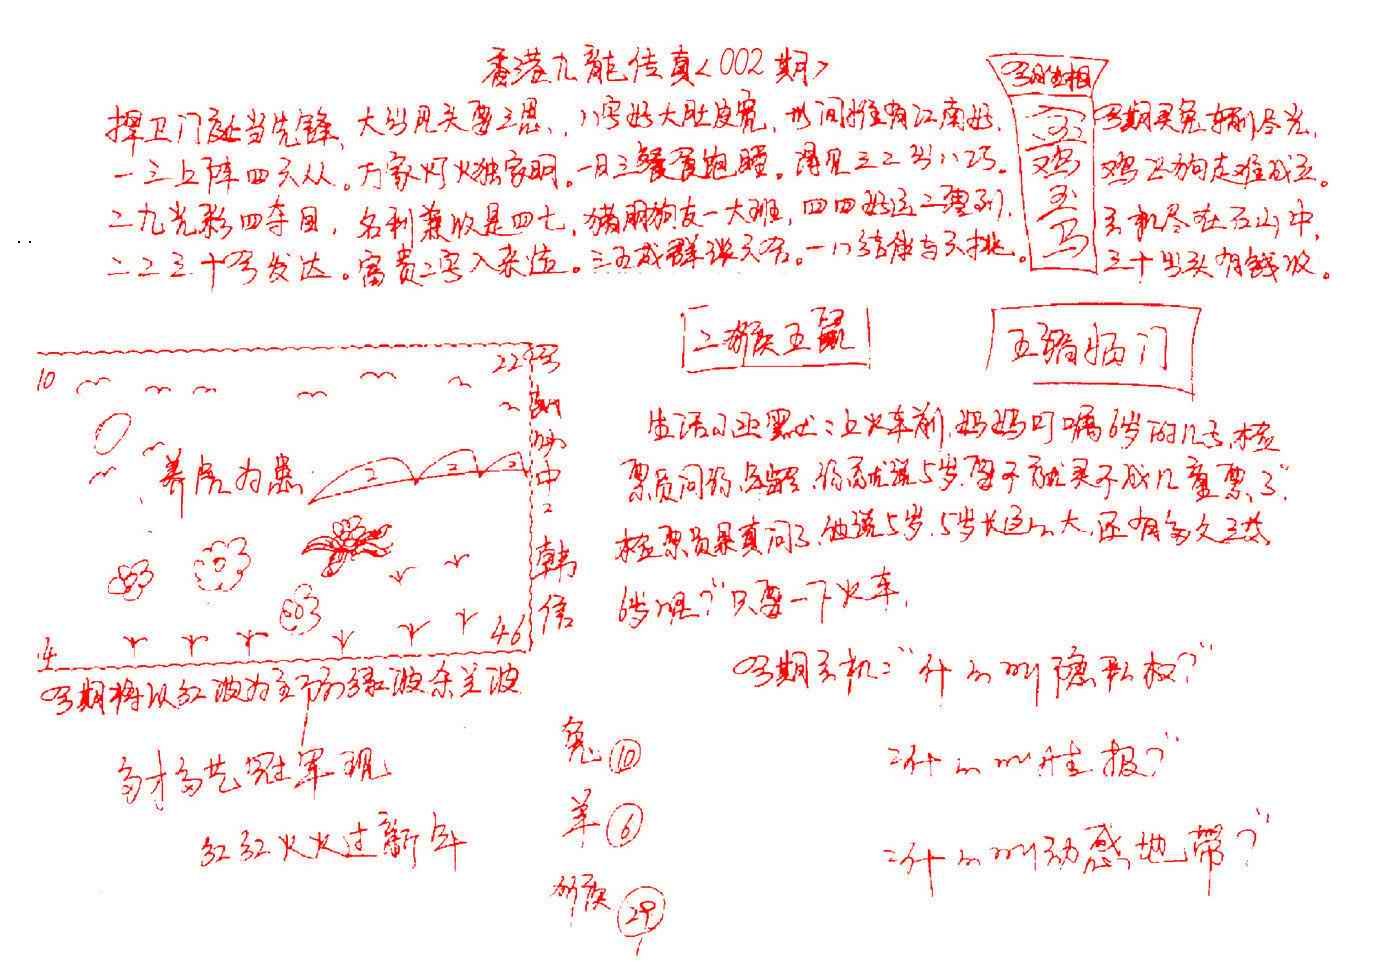 香港九龍传真<002期>
捍卫门户当先锋，大出风头要三思，八字好大肚皮宽，世间惟有江南好，
一三上阵四六从。万家灯火独家明。一日三餐食跑睡。得见三二出八巧。
二九光彩四夺目，名利兼收是四七，猪朋狗友一大班，四四好运二要到，
二二三十今发达。富贵二字入来造。三五成群谈天吞。一八结伴与天挑。
今期生相
鸡
马
今期买兔输尽光，
鸡飞狗走难成立。
玄机尽在石山中，
三十出头有钱收。
二猴五鼠
五猪临门
10
22
养虎为患
2
2
2
4
46
中
2
韩
信
今期将以红波为主 绿波杂兰波
多才多艺冠军现
红红火火过新年
兔 10
羊 6
猴 29
生活小 上火车前，妈妈叮嘱6岁的儿子，检
票员问你 你就说5岁，要不就买不成儿童票了"
检票员果真问了，他说5岁，5岁长这么大，还有多久
6岁呢?"只要一下火车，
今期玄机:"什么叫隐私权?"
:什么叫 报?"
:什么叫动感地带?"